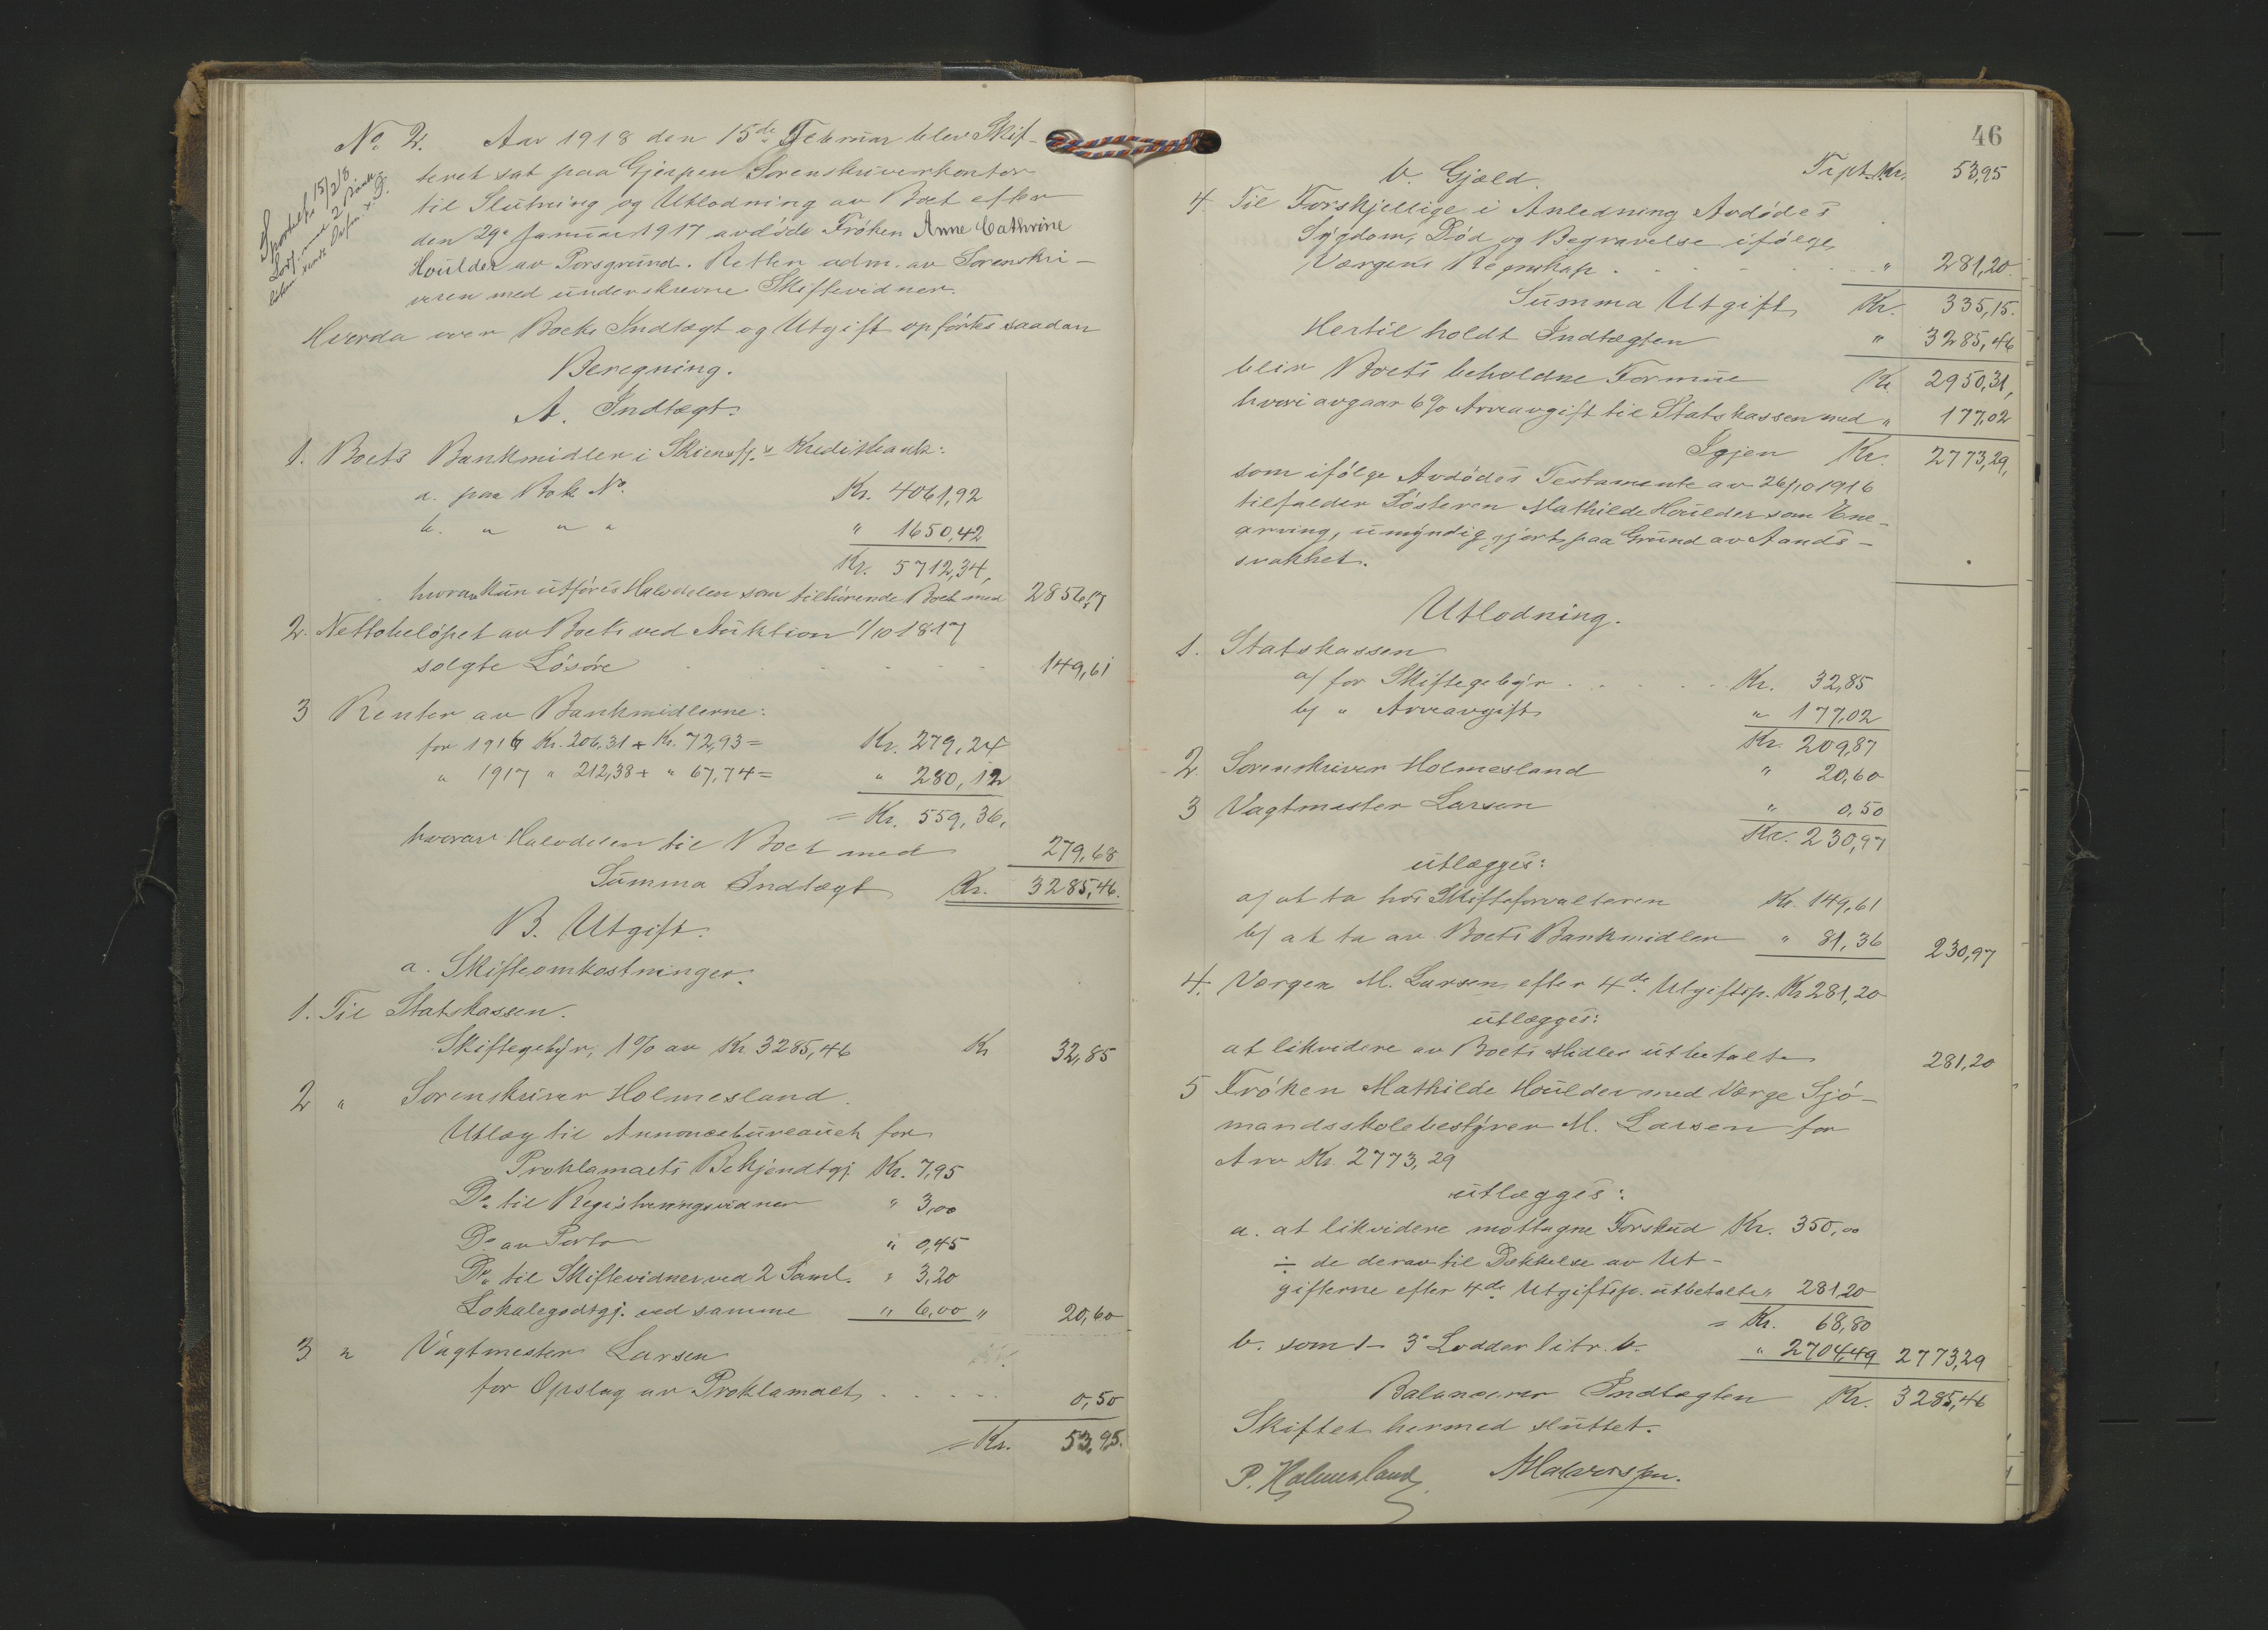 No. 2. Aar 1918 den 15de Februar blev Skif-
teret sat paa Gjerpen Sorenskriverkontor
til Slutning og Utlodning av Boet efter
den 29. Januar 1917 avdöde Fröken Anne Cathrine
Houlder av Porsgrund. Retten adm. av Sorenskri-
veren med underskrevne Skiftevidner.
Hvorda over Boets Indtægt og Utgift opförtes saadan
Beregning.
A. Indtægt.
1. Boets Bankmidler i Skiensfj.s Kreditbank:
a. paa Bok No. Kr. 4061,92
b. " " " " 1650,42
Kr. 5712,34,
hvorav kun utföres Halvdelen som tilhörende Boet med 2856,17
2. Nettobelöpet av Boets ved Auktion 1/10 1817
solgte Lösöre 149,61
3 Renter av Bankmidlerne:
for 1916 Kr. 206,31 + Kr. 72,93 = Kr. 279,24
" 1917 " 212,38 + " 67,74 = " 280,12
= Kr. 559,36.
hvorav Halvdelen til Boet med 279,68
Summa Indtægt Kr. 3285,46.
B. Utgift.
a. Skifteomkostninger.
1. Til Statskassen.
Skiftegebyr, 1% av Kr. 3285,46 Kr 32,85
2 " Sorenskriver Holmesland.
Utlæg til Annoncebureauet for
Proklamaets Bekjendtgj. Kr. 7,95
Do. til Registreringsvidner " 3,00
Do. av Porto " 0,45
Do. til Skiftevidner ved 2 Saml. " 3,20
Lokalegodtgj. ved samme " 6,00 " 20,60
3 " Vagtmester Larsen
for Opslag av Proklamaet 0,50
= Kr. 53,95.
46
b. Gjæld. Trpt. Kr. 53,95
4. Til Forskjellige i Anledning Avdödes
Sygdom, Död og Begravelse ifölge
Værgens Regnskap " 281,20.
Summa Utgift Kr. 335,15.
Hertil holdt Indtægten " 3285,46
blir Boets beholdne Formue Kr. 2950,31,
hvori avgaar 6% Arveavgift til Statskassen med " 177,02
Igjen Kr. 2773,29,
som ifölge Avdödes Testamente av 26/10 1916
tilfalder Sösteren Mathilde Houlder som Ene-
arving, umyndiggjort paa Grund av Aands-
svakhet.
Utlodning.
1. Statskassen
a/ for Skiftegebyr Kr. 32,85
b/ " Arveavgift " 177,02
Kr. 209,87
2 Sorenskriver Holmesland " 20,60
3 Vagtmester Larsen " 0,50
Kr. 230,97
utlægges:
a/ at ta hos Skifteforvalteren Kr. 149,61
b/ at ta av Boets Bankmidler " 81,36 230,97
4. Værgen M. Larsen efter 4de Utgiftsp. Kr 281,20
utlægges:
at likvidere av Boets Midler utbetalt 281,20
5 Fröken Mathilde Houlder med Værge Sjö-
mandsskolebestyrer M. Larsen for
Arv Kr. 2773,29
utlægges:
a. at likvidere mottagne Forskud Kr. 350,00
÷ de derav til Dækkelse av Ut-
gifterne efter 4de Utgiftsp. utbetalte " 281,20
= Kr. 68,80
b. som 1-3 Lodder litr. b. " 2704,49 2773,29
Balancerer Indtægten Kr. 3285,46
Skiftet hermed sluttet.
P. Holmesland